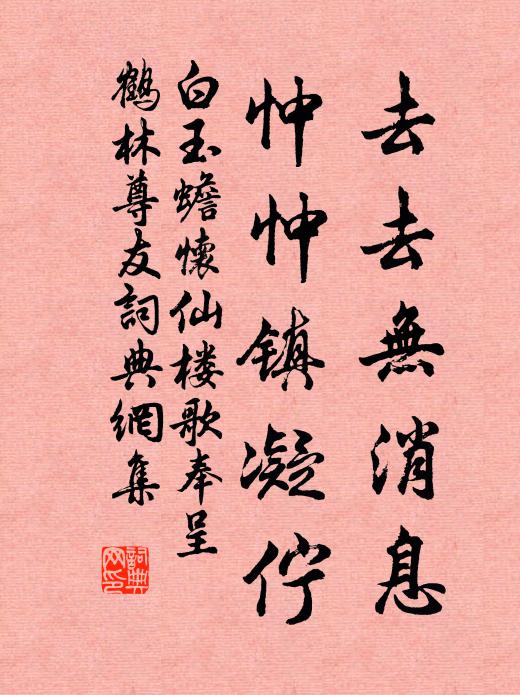 去去無消息
忡忡镇凝佇
白玉蟾懷仙楼歌奉呈
鶴林尊友詞典網集
詞典网印